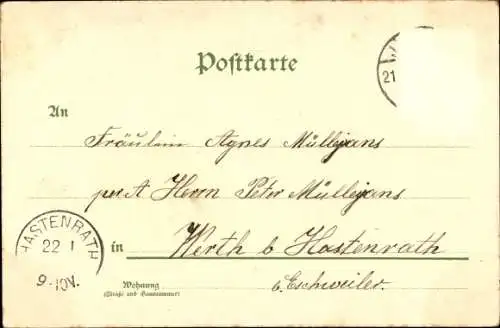 Postkarte
21
An
Fräulein Agnes Müllejans
per A Herrn Peter Müllejans
HASTENRATH
22 1
9-10V.
in Werth b Hastenrath
b. Eschweiler.
Wohnung
(Straße und Hausnummer)